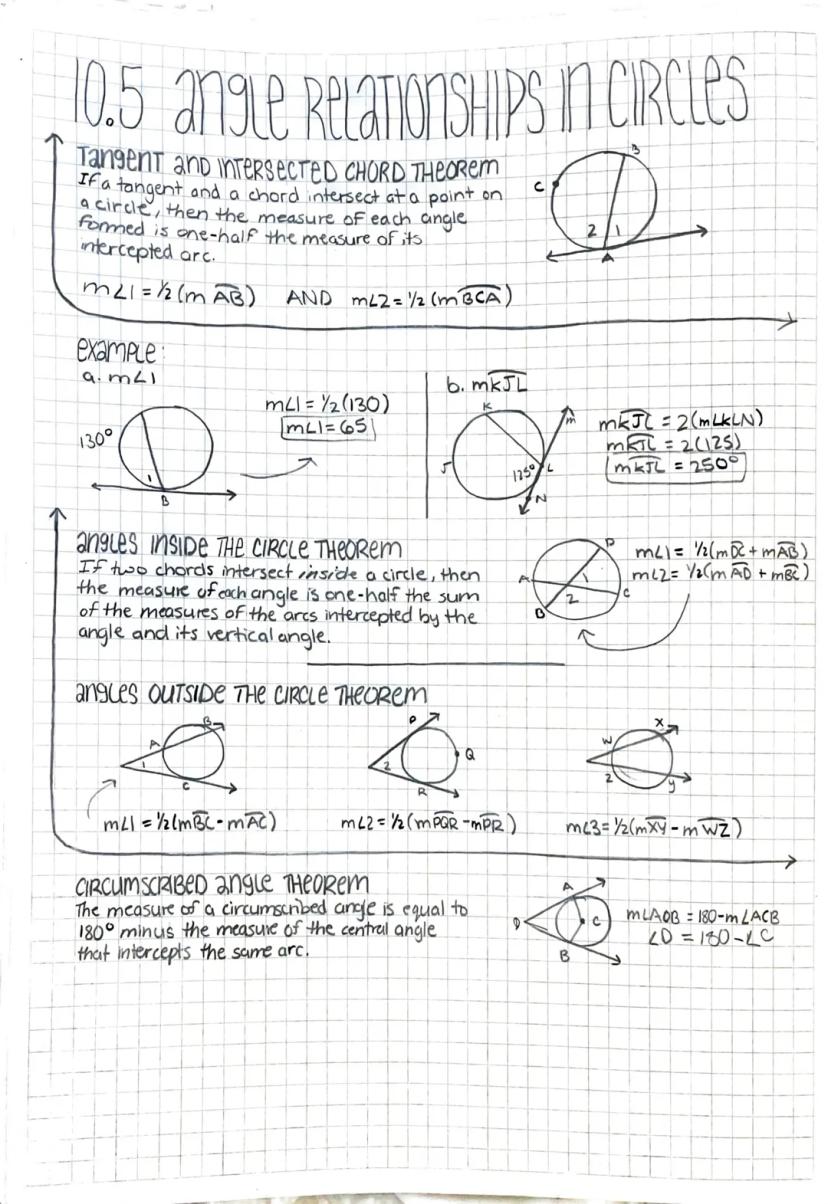 10.5 angle Relationships in Circles
Tangent and Intersected Chord Theorem
If a tangent and a chord intersect at a point on
a circle, then the measure of each angle
formed is one-half the measure of its
intercepted arc.
B
C
2 1
A
m∠1 = ½(m AB) AND m∠2 = ½(m BCA)
example:
a. m∠1
130°
1
B
m∠1 = ½(130)
m∠1 = 65
b. mKJL
K
m
J
125°
L
N
mKJL = 2(m∠KLN)
mKJL = 2(125)
mKJL = 250°
angles inside the circle theorem
If two chords intersect inside a circle, then
the measure of each angle is one-half the sum
of the measures of the arcs intercepted by the
angle and its vertical angle.
D
A
1
2
C
B
m∠1 = ½(mDC + mAB)
m∠2 = ½(mAD + mBC)
angles outside the circle theorem
A B
1
C
P
2
Q
R
W X
2
y
m∠1 = ½(mBC - mAC)
m∠2 = ½(mPQR - mPR)
m∠3 = ½(mXY - mWZ)
circumscribed angle theorem
The measure of a circumscribed angle is equal to
180° minus the measure of the central angle
that intercepts the same arc.
A
D
C
B
m∠ADB = 180 - m∠ACB
∠D = 180 - ∠C